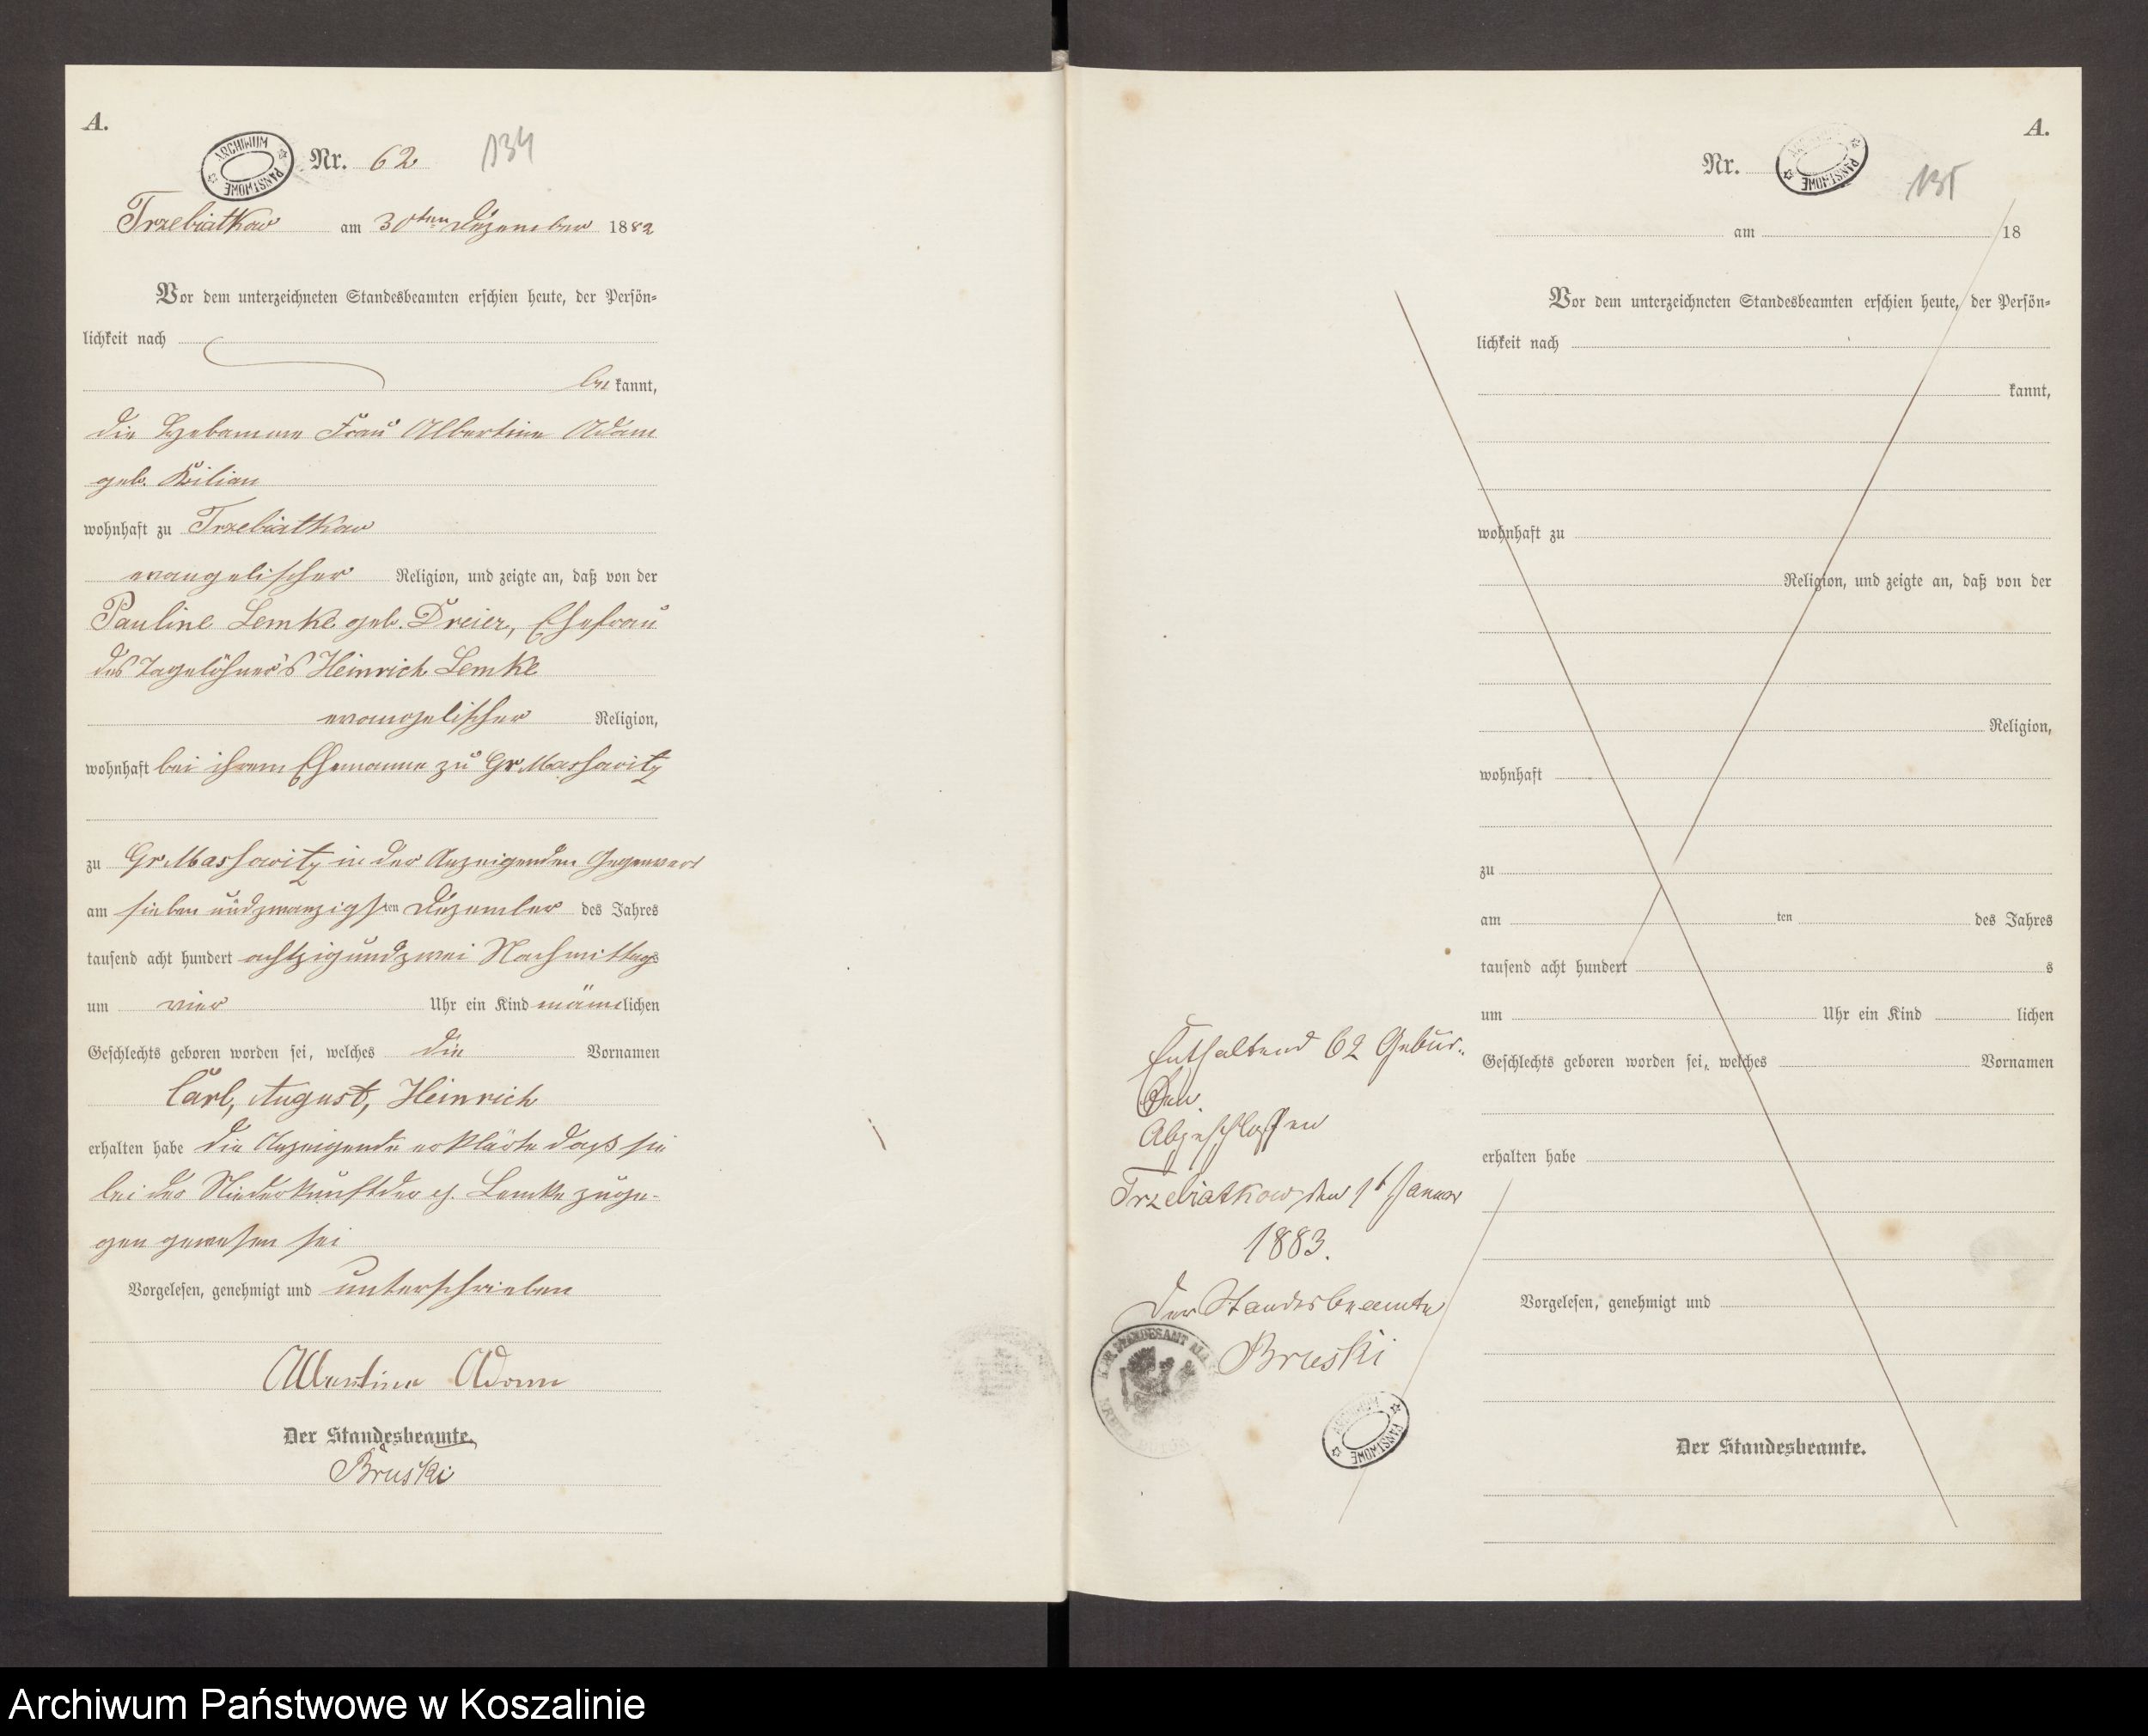 A.
ARCHIWUM PAŃSTWOWE
Nr. 62
134
Trzebiatkow am 30ten Dezember 1882
Vor dem unterzeichneten Standesbeamten erschien heute, der Persön=
lichkeit nach
be kannt,
die Hebamme Frau Albertine Adam
geb. Kilian
wohnhaft zu Trzebiatkow
evangelischer Religion, und zeigte an, daß von der
Pauline Lemke geb. Dreier, Ehefrau
des Tagelöhner's Heinrich Lemke
evangelischer Religion,
wohnhaft bei ihrem Ehemanne zu Gr. Massowitz
zu Gr. Massowitz in der Anzeigenden Gegenwart
am sieben und zwanzigsten Dezember des Jahres
tausend acht hundert achtzig und zwei Nachmittags
um vier Uhr ein Kind männlichen
Geschlechts geboren worden sei, welches die Vornamen
Carl, August, Heinrich
erhalten habe die Anzeigende erklärte daß sie
bei der Niederkunft der Lemke zuge-
gen gewesen sei
Vorgelesen, genehmigt und unterschrieben
Albertine Adam
Der Standesbeamte.
Bruski
A.
Nr.
ARCHIWUM PAŃSTWOWE
135
am 18
Vor dem unterzeichneten Standesbeamten erschien heute, der Persön=
lichkeit nach
kannt,
wohnhaft zu
Religion, und zeigte an, daß von der
Religion,
wohnhaft
zu
am ten des Jahres
tausend acht hundert s
um Uhr ein Kind lichen
Geschlechts geboren worden sei, welches Vornamen
erhalten habe
Vorgelesen, genehmigt und
Der Standesbeamte.
Enthaltend 62 Gebur-
ten
Abgeschlossen
Trzebiatkow, den 1t Januar
1883.
Der Standesbeamte
Bruski
STANDESAMT
ARCHIWUM PAŃSTWOWE
Archiwum Państwowe w Koszalinie